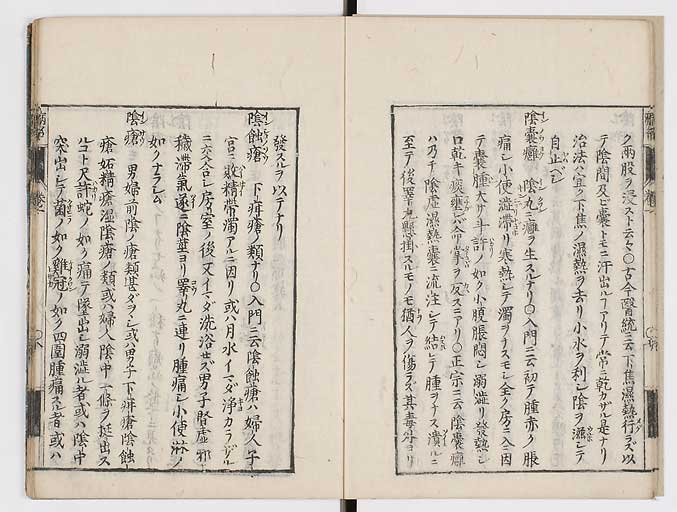 ク兩股ヲ浸スト云々〇古今醫統ニ云下焦濕熱行ラズ以
テ陰間及ビ囊トモニ汗出ルアリテ常ニ乾カザル是ナリ
治法ハ宜ク下焦ノ濕熱ヲ去リ小水ヲ利シ陰ヲ滋シテ
自止ベシ
陰囊癰 陰丸ニ癰ヲ生スルナリ〇入門ニ云初テ腫赤ク脹
痛シ小便澁滯リ寒熱シテ渴ヲナスモシ全ク房ニ因
テ囊腫大サ斗許ノ如ク小腹脹悶シ溺澁リ發熱シ
口乾キ痰壅シ命掌ヲ反スニアリ〇正宗ニ云陰囊癰
ハ乃チ陰虛濕熱囊ニ流注シテ結シテ腫ヲナス潰ルニ
至テ後睪丸懸掛スルモノモ猶人ヲ傷ラズ其毒外ヨリ
發スルヲ以テナリ
陰蝕瘡 下疳瘡ノ類ナリ〇入門ニ云陰蝕瘡ハ婦人子
宮ニ敗精帶濁アルニ因リ或ハ月水イマダ淨カラザル
ニ交合シ房室ノ後又イマダ洗浴セズ男子腎虛邪
穢滯氣遂ニ陰莖ヨリ睪丸ニ連リ腫痛シ小便淋ノ
如クナラシム
陰瘡 男婦前陰ノ瘡類甚ダヲシ或ハ男子下疳瘡陰蝕
瘡妬精瘡濕陰瘡ノ類或ハ婦人陰中一條ヲ挺出ス
尺許蛇ノ如ク痛テ墜出シ溺澁ル者或ハ陰中
突出シテ菌ノ如ク雞冠ノ如ク四圍腫痛スル者或ハ